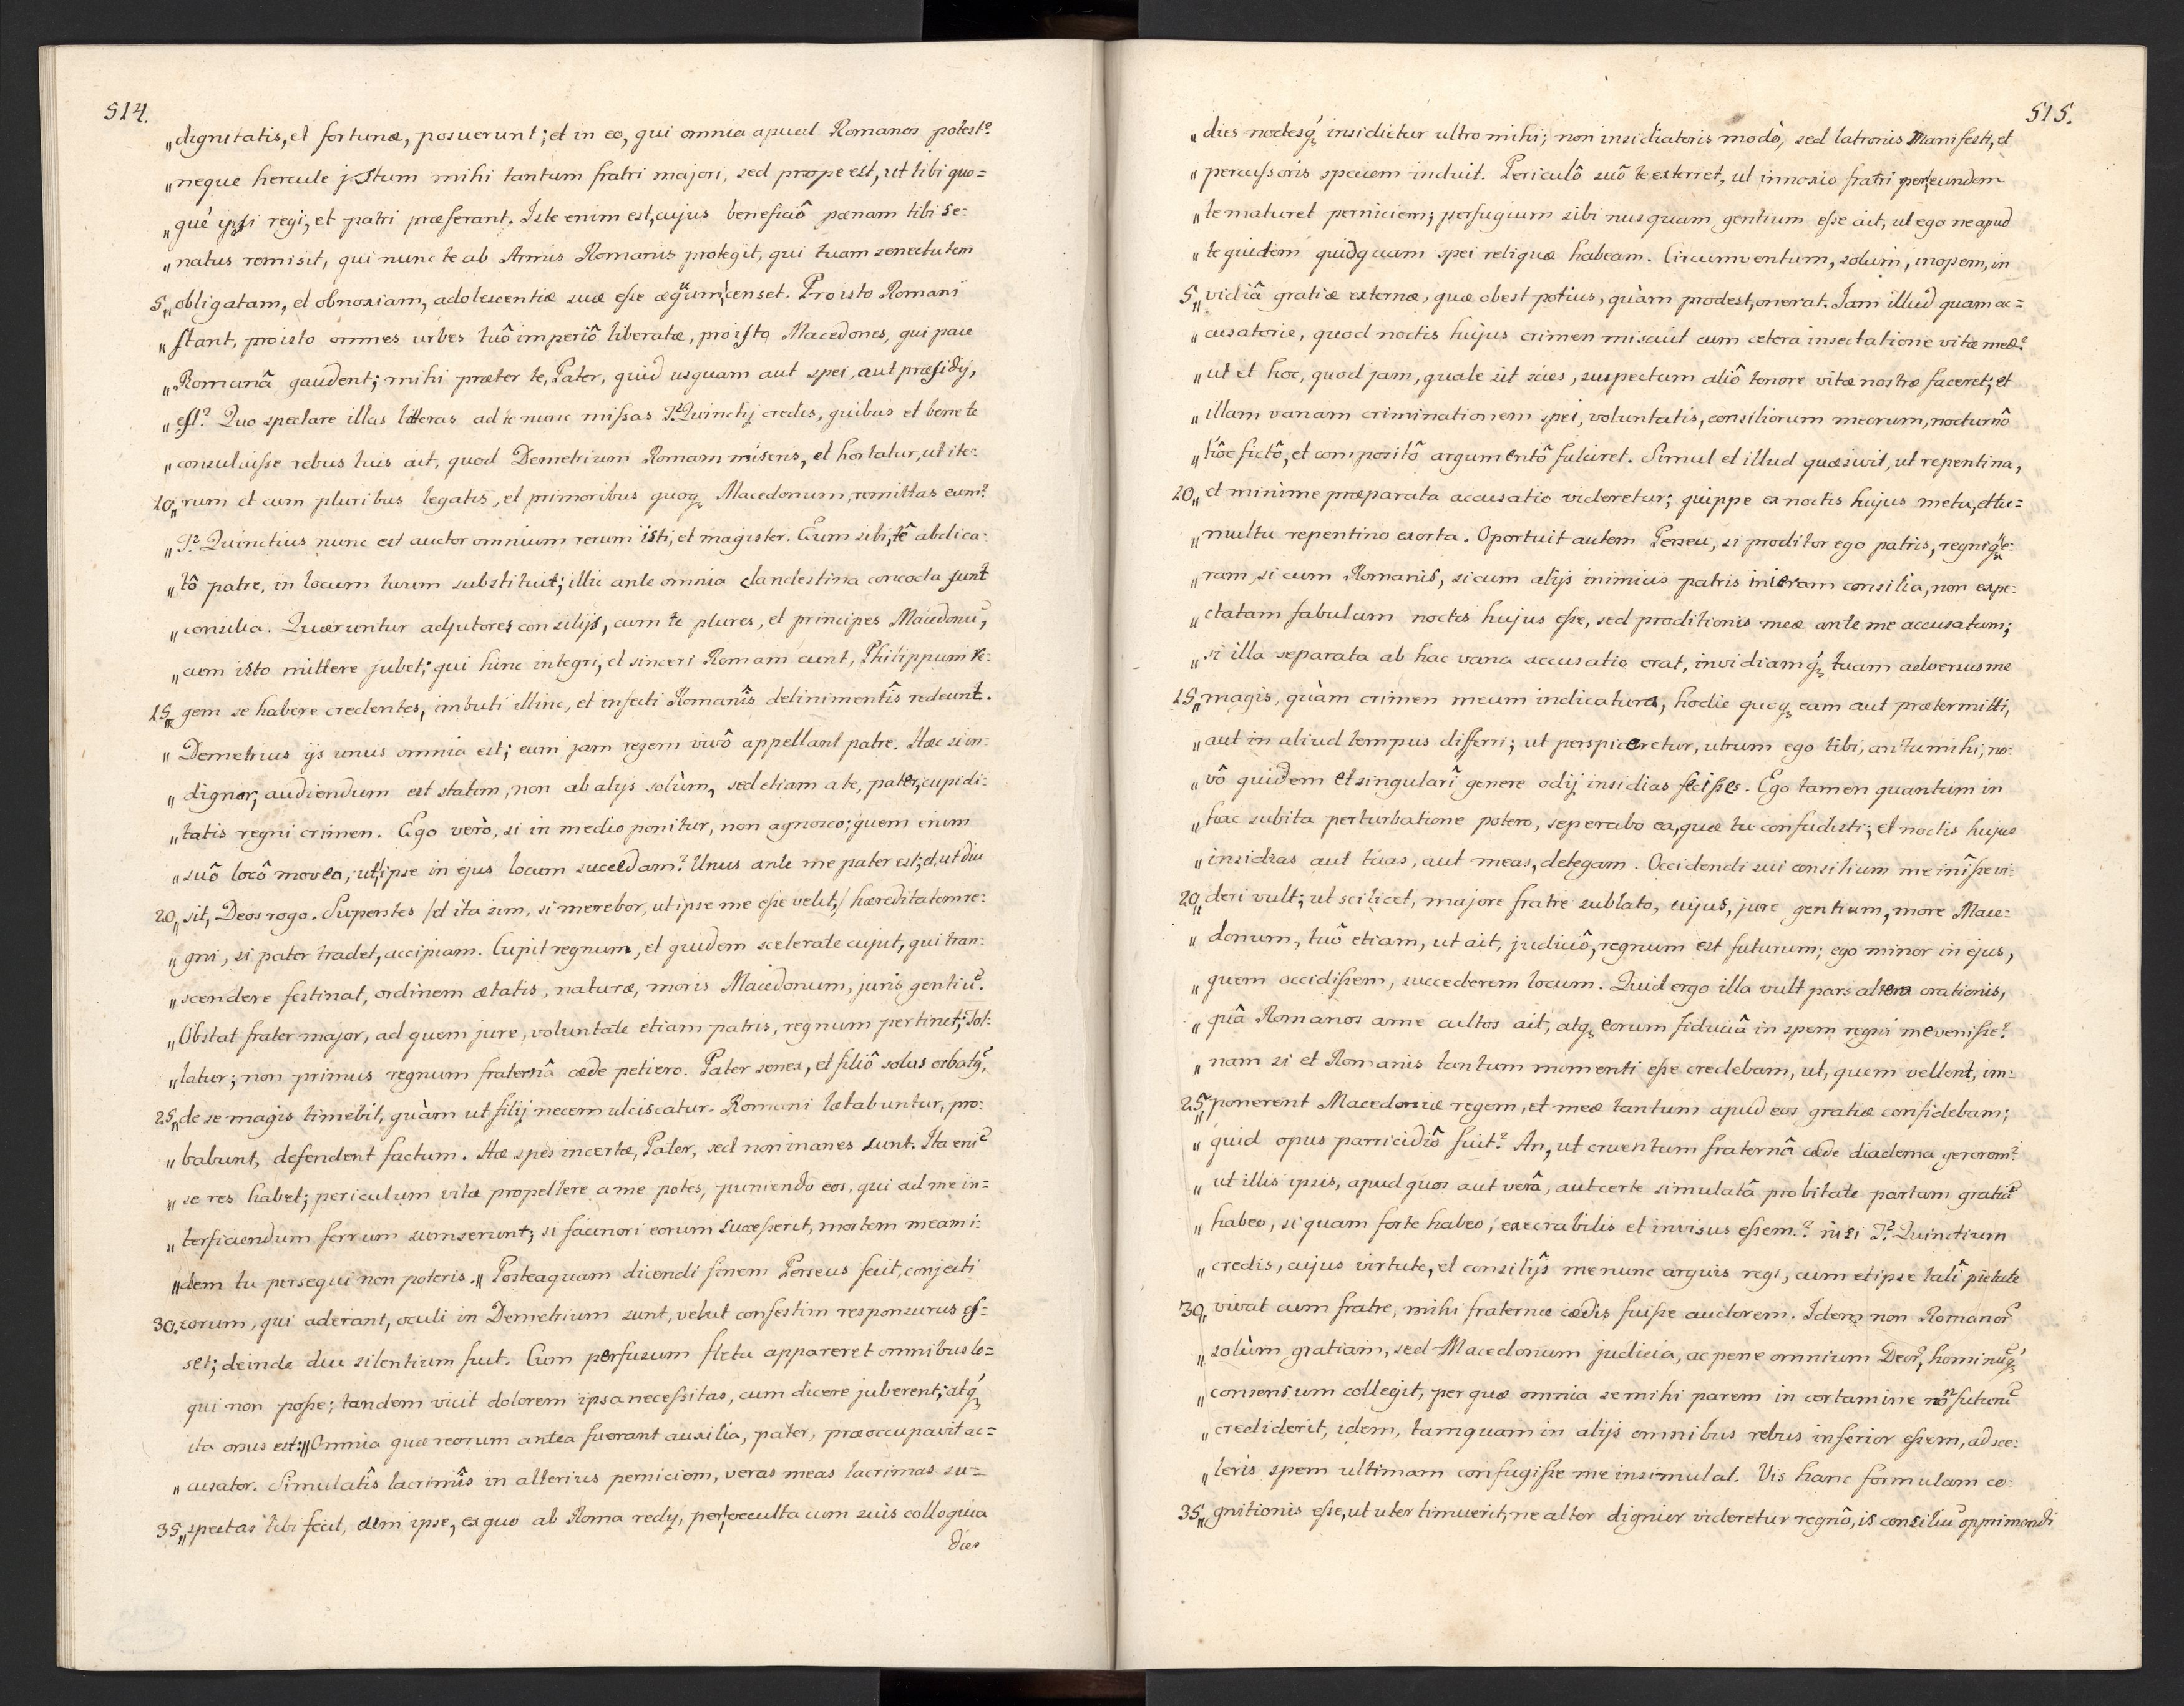 514.
„dignitatis, et fortunæ, posuerunt; et in eo, qui omnia apud Romanos potest?
„neque hercule istum mihi tantum fratri majori, sed prope est, ut tibi quo=
„què ipsi regi, et patri præferant. Iste enim est, cujus beneficiô pœnam tibi Se=
„natus remisit, qui nunc te ab Armis Romanis protegit, qui tuam senectutem
5„obligatam, et obnoxiam, adolescentiæ suæ eſse æquum, censet. Pro isto Romani
„stant, pro isto omnes urbes tuô imperiô liberatæ, pro isto Macedones, qui pace
„Romanâ gaudent; mihi præter te, Pater, quid usquam aut spei, aut præsidij,
„est? Quo spectare illas litteras ad te nunc miſsas T. Quinctij credis, quibus et bene te
„consuluiſse rebus tuis ait, quod Demetrium Romam miseris, et hortatur, ut ite=
10„rum et cum pluribus legatis, et primoribus quoq; Macedonum, remittas eum?
„T. Quinctius nunc est auctor omnium rerum isti, et magister. Eum sibi, tê abdica=
„tô patre, in locum tuum substituit; illic ante omnia clandestina concocta sunt
„consilia. Quæruntur adjutores consilijs, cum te plures, et principes Macedonũ,
„cum isto mittere jubet; qui hinc integri, et sinceri Romam eunt, Philippum re=
15„gem se habere credentes, imbuti illinc, et infecti Romanîs delinimentîs redeunt.
„Demetrius ijs unus omnia est; eum jam regem vivô appellant patre. Hæc si in=
„dignor, audiendum est statim, non ab alijs solùm, sed etiam a te, pater, cupidi=
„tatis regni crimen. Ego verò, si in medio ponitur, non agnosco; quem enim
„suô locô moveo, ut ipse in ejus locum succedam? Unus ante me pater est; et, ut diu
20„sit, Deos rogo. Superstes /et ita sim, si merebor, ut ipse me eſse velit,/ hæreditatem re=
„gni, si pater tradet, accipiam. Cupit regnum, et quidem scelerate cupit, qui tran=
„scendere festinat, ordinem ætatis, naturæ, moris Macedonum, juris gentiũ.
„Obstat frater major, ad quem jure, voluntate etiam patris, regnum pertinet; Tol=
„latur; non primus regnum fraternâ cæde petiero. Pater senex, et filiô solus orbatq,
25„de se magis timebit, quàm ut filij necem ulciscatur. Romani lætabuntur, pro=
„babunt, defendent factum. Hæ spes incertæ, Pater, sed non inanes sunt. Ita enĩ
„se res habet; periculum vitæ propellere a me potes, puniendo eos, qui ad me in=
„terficiendum ferrum sumserunt; si facinori eorum succeſserit, mortem meam i=
„dem tu persequi non poteris.„ Posteaquam dicendi finem Perseus fecit, conjecti
30.eorum, qui aderant, oculi in Demetrium sunt, velut confestim responsurus eſ=
set; deinde diu silentium fuit. Cum perfusum fletu appareret omnibus lo=
qui non poſse; tandem vicit dolorem ipsa neceſsitas, cum dicere juberent; atq;
ita orsus est: „Omnia quæ reorum antea fuerant auxilia, pater, præoccupavit ac=
„cusator. Simulatîs lacrimîs in alterius perniciem, veras meas lacrimas su=
35„spectas tibi fecit, cum ipse, ex quo ab Roma redij, per occulta cum suis colloquia
dies
515.
„dies noctesq; insidietur ultro mihi; non insidiatoris modò, sed latronis Manifesti, et
„percuſsoris speciem induit. Periculô suô te exterret, ut innoxio fratri per eundem
„te maturet perniciem; perfugium sibi nusquam gentium eſse ait, ut ego ne apud
„te quidem quidquam spei reliquæ habeam. Circumventum, solum, inopem, in
5„vidiâ gratiæ externæ, quæ obest potius, quàm prodest, onerat. Jam illud quam ac=
„cusatorie, quod noctis hujus crimen miscuit cum cetera insectatione vitæ meæ?
„ut et hoc, quod jam, quale sit scies, suspectum aliô tenore vitæ nostræ faceret; et
„illam vanam criminationem spei, voluntatis, consiliorum meorum, nocturnô
„hôc fictô, et compositô argumentô fulciret. Simul et illud quæsivit, ut repentina,
10„et minime præparata accusatio videretur; quippe ex noctis hujus metu, et tu=
„multu repentino exorta. Oportuit autem Perseu, si proditor ego patris, regniq; e=
„ram, si cum Romanis, si cum alijs inimicis patris inieram consilia, non expe=
„ctatam fabulam noctis hujus eſse, sed proditionis meæ ante me accusatum;
„si illa separata ab hac vana accusatio erat, invidiamq; tuam adversus me
15„magis, quàm crimen meum indicatura, hodie quoq; eam aut prætermitti,
„aut in aliud tempus differri; ut perspiceretur, utrum ego tibi, an tu mihi, no=
„vô quidem et singularî genere odij insidias feciſses. Ego tamen quantum in
„hac subita perturbatione potero, seperabo ea, quæ tu confudisti; et noctis hujus
„insidias aut tuas, aut meas, detegam. Occidendi sui consilium me inîſse vi=
20„deri vult; ut scilicet, majore fratre sublato, cujus, jure gentium, more Mace=
„donum, tuô etiam, ut ait, judiciô, regnum est futurum; ego minor in ejus,
„quem occidiſsem, succederem locum. Quid ergo illa vult pars altera orationis,
„quâ Romanos a me cultos ait, atq; eorum fiduciâ in spem regni me veniſse?
„nam si et Romanis tantum momenti eſse credebam, ut, quem vellent, im=
25„ponerent Macedoniæ regem, et meæ tantum apud eos gratiæ confidebam;
„quid opus parricidiô fuit? An, ut cruentum fraternâ cæde diadema gererem?
„ut illis ipsis, apud quos aut verâ, aut certe simulatâ probitate partam gratiã
„habeo, si quam forte habeo, execrabilis et invisus eſsem? nisi T. Quinctium
„credis, cujus virtute, et consilijs me nunc arguis regi, cum et ipse talî pietate
30„vivat cum fratre, mihi fraternæ cædis fuiſse auctorem. Idem non Romanor̃
„solùm gratiam, sed Macedonum judicia, ac pene omnium Deor̃, hominũq;
„consensum collegit, per quæ omnia se mihi parem in certamine nõ futurũ
„crediderit, idem, tamquam in alijs omnibus rebus inferior eſsem, ad sce=
„leris spem ultimam confugiſse me insimulat. Vis hanc formulam co=
35„gnitionis eſse, ut uter timuerit, ne alter dignior videretur regnô, is consiliũ opprimendi